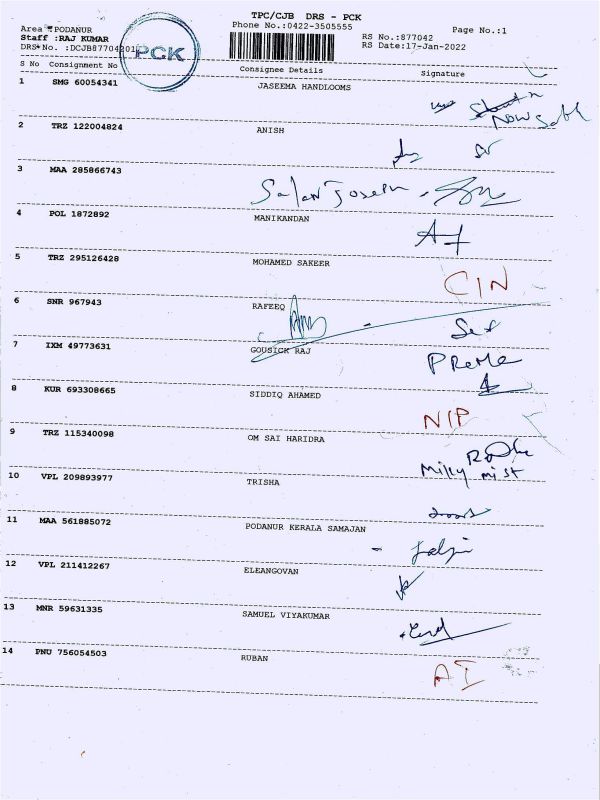 TPC/CJB DRS - PCK
Phone No.:0422-3505555
Area :PODANUR
Page No.:1
Staff :RAJ KUMAR
RS No.:877042
DRS No. :DCJB87704201
RS Date:17-Jan-2022
PCK
S No Consignment No Consignee Details Signature
1 SMG 60054341 JASEEMA HANDLOOMS
2 TRZ 122004824 ANISH
3 MAA 285866743
Salan Joseph
4 POL 1872892 MANIKANDAN
5 TRZ 295126428 MOHAMED SAKEER
CIN
6 SNR 967943 RAFEEQ
7 IXM 49773631 GOUSICK RAJ
8 KUR 693308665 SIDDIQ AHAMED
NIP
9 TRZ 115340098 OM SAI HARIDRA
Milky mist
10 VPL 209893977 TRISHA
11 MAA 561885072 PODANUR KERALA SAMAJAN
12 VPL 211412267 ELEANGOVAN
13 MNR 59631335 SAMUEL VIYAKUMAR
14 PNU 756054503 RUBAN
AI